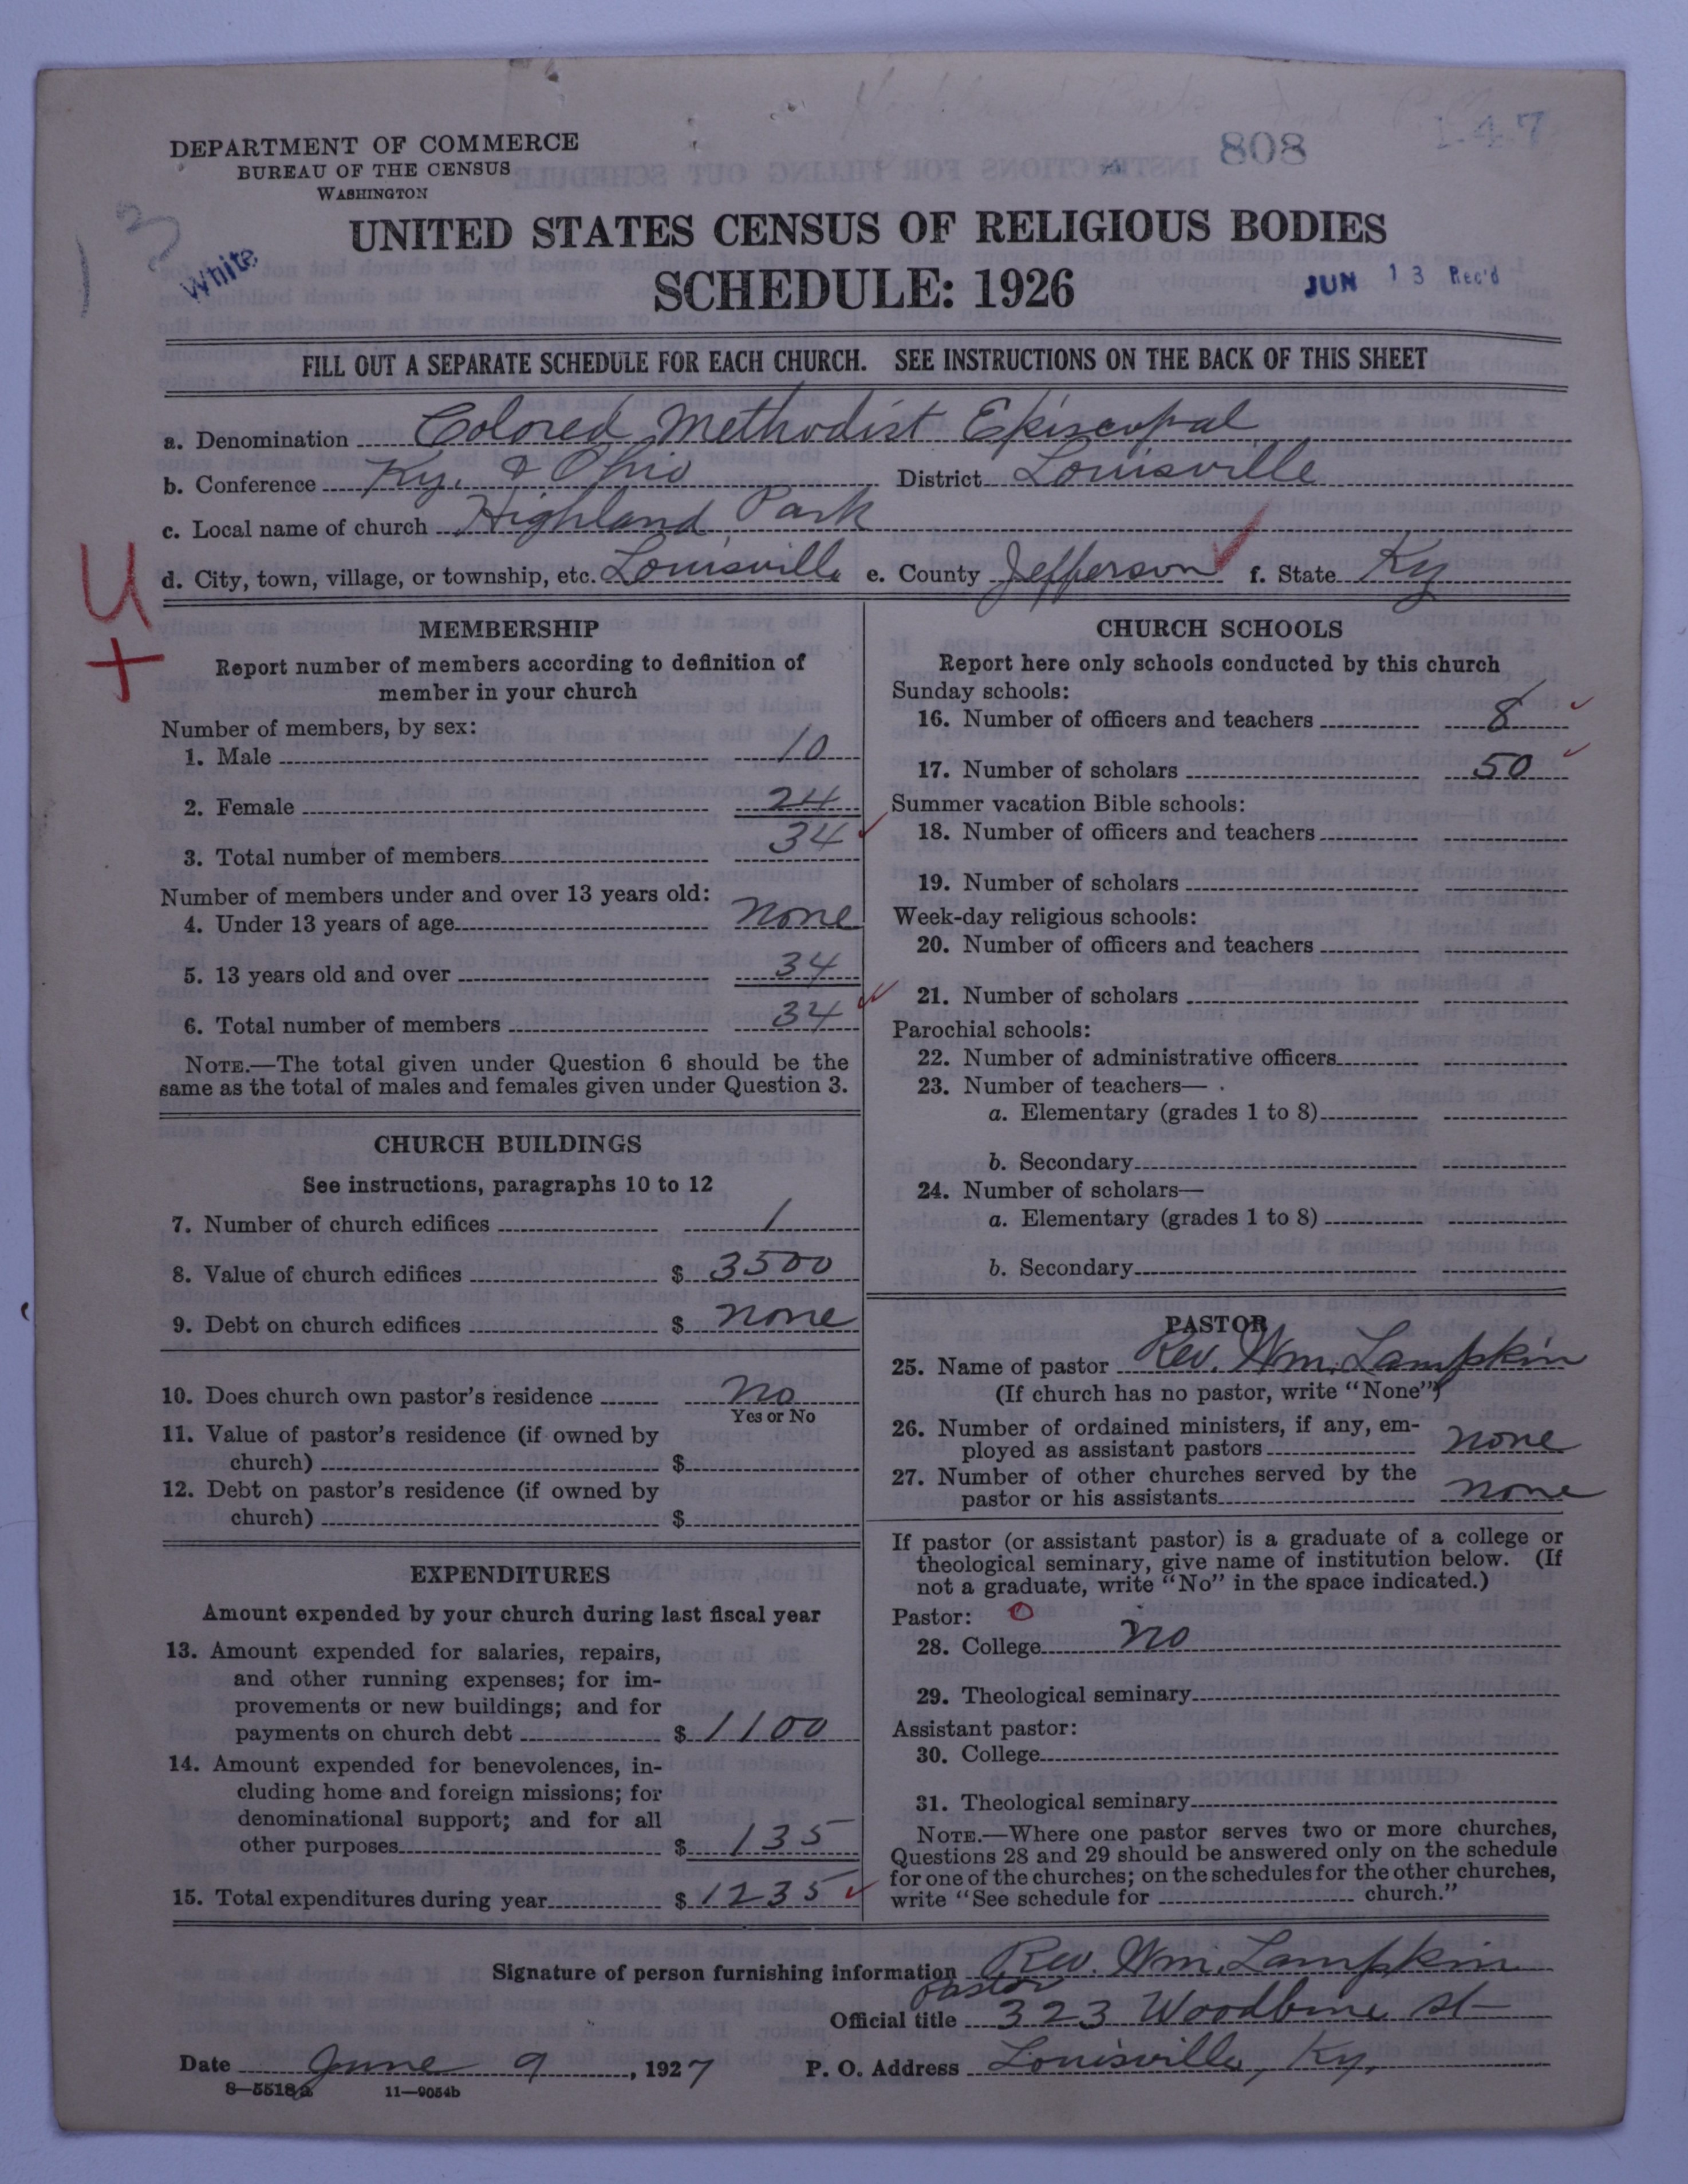 DEPARTMENT OF COMMERCE
BUREAU OF THE CENSUS
WASHINGTON
808
147
White
UNITED STATES CENSUS OF RELIGIOUS BODIES
SCHEDULE: 1926
JUN 13 Rec'd
FILL OUT A SEPARATE SCHEDULE FOR EACH CHURCH. SEE INSTRUCTIONS ON THE BACK OF THIS SHEET
a. Denomination Colored Methodist Episcopal
b. Conference Ky. & Ohio District Louisville
c. Local name of church Highland Park
d. City, town, village, or township, etc. Louisville e. County Jefferson f. State Ky
U
+
MEMBERSHIP
Report number of members according to definition of
member in your church
Number of members, by sex:
1. Male 10
2. Female 24
3. Total number of members 34
Number of members under and over 13 years old:
4. Under 13 years of age none
5. 13 years old and over 34
6. Total number of members 34
NOTE.—The total given under Question 6 should be the
same as the total of males and females given under Question 3.
CHURCH BUILDINGS
See instructions, paragraphs 10 to 12
7. Number of church edifices 1
8. Value of church edifices $ 3500
9. Debt on church edifices $ none
10. Does church own pastor's residence no
Yes or No
11. Value of pastor's residence (if owned by
church) $
12. Debt on pastor's residence (if owned by
church) $
EXPENDITURES
Amount expended by your church during last fiscal year
13. Amount expended for salaries, repairs,
and other running expenses; for im-
provements or new buildings; and for
payments on church debt $ 1100
14. Amount expended for benevolences, in-
cluding home and foreign missions; for
denominational support; and for all
other purposes $ 135
15. Total expenditures during year $ 1235
CHURCH SCHOOLS
Report here only schools conducted by this church
Sunday schools:
16. Number of officers and teachers 8
17. Number of scholars 50
Summer vacation Bible schools:
18. Number of officers and teachers
19. Number of scholars
Week-day religious schools:
20. Number of officers and teachers
21. Number of scholars
Parochial schools:
22. Number of administrative officers
23. Number of teachers—
a. Elementary (grades 1 to 8)
b. Secondary
24. Number of scholars—
a. Elementary (grades 1 to 8)
b. Secondary
PASTOR
25. Name of pastor Rev. Wm. Lampkin
(If church has no pastor, write "None")
26. Number of ordained ministers, if any, em-
ployed as assistant pastors none
27. Number of other churches served by the
pastor or his assistants none
If pastor (or assistant pastor) is a graduate of a college or
theological seminary, give name of institution below. (If
not a graduate, write "No" in the space indicated.)
Pastor: O
28. College no
29. Theological seminary
Assistant pastor:
30. College
31. Theological seminary
NOTE.—Where one pastor serves two or more churches,
Questions 28 and 29 should be answered only on the schedule
for one of the churches; on the schedules for the other churches,
write "See schedule for church."
Signature of person furnishing information Rev. Wm. Lampkin
pastor
Official title 323 Woodbine St
Date June 9, 1927 P. O. Address Louisville, Ky.
8—5518a 11—9054b